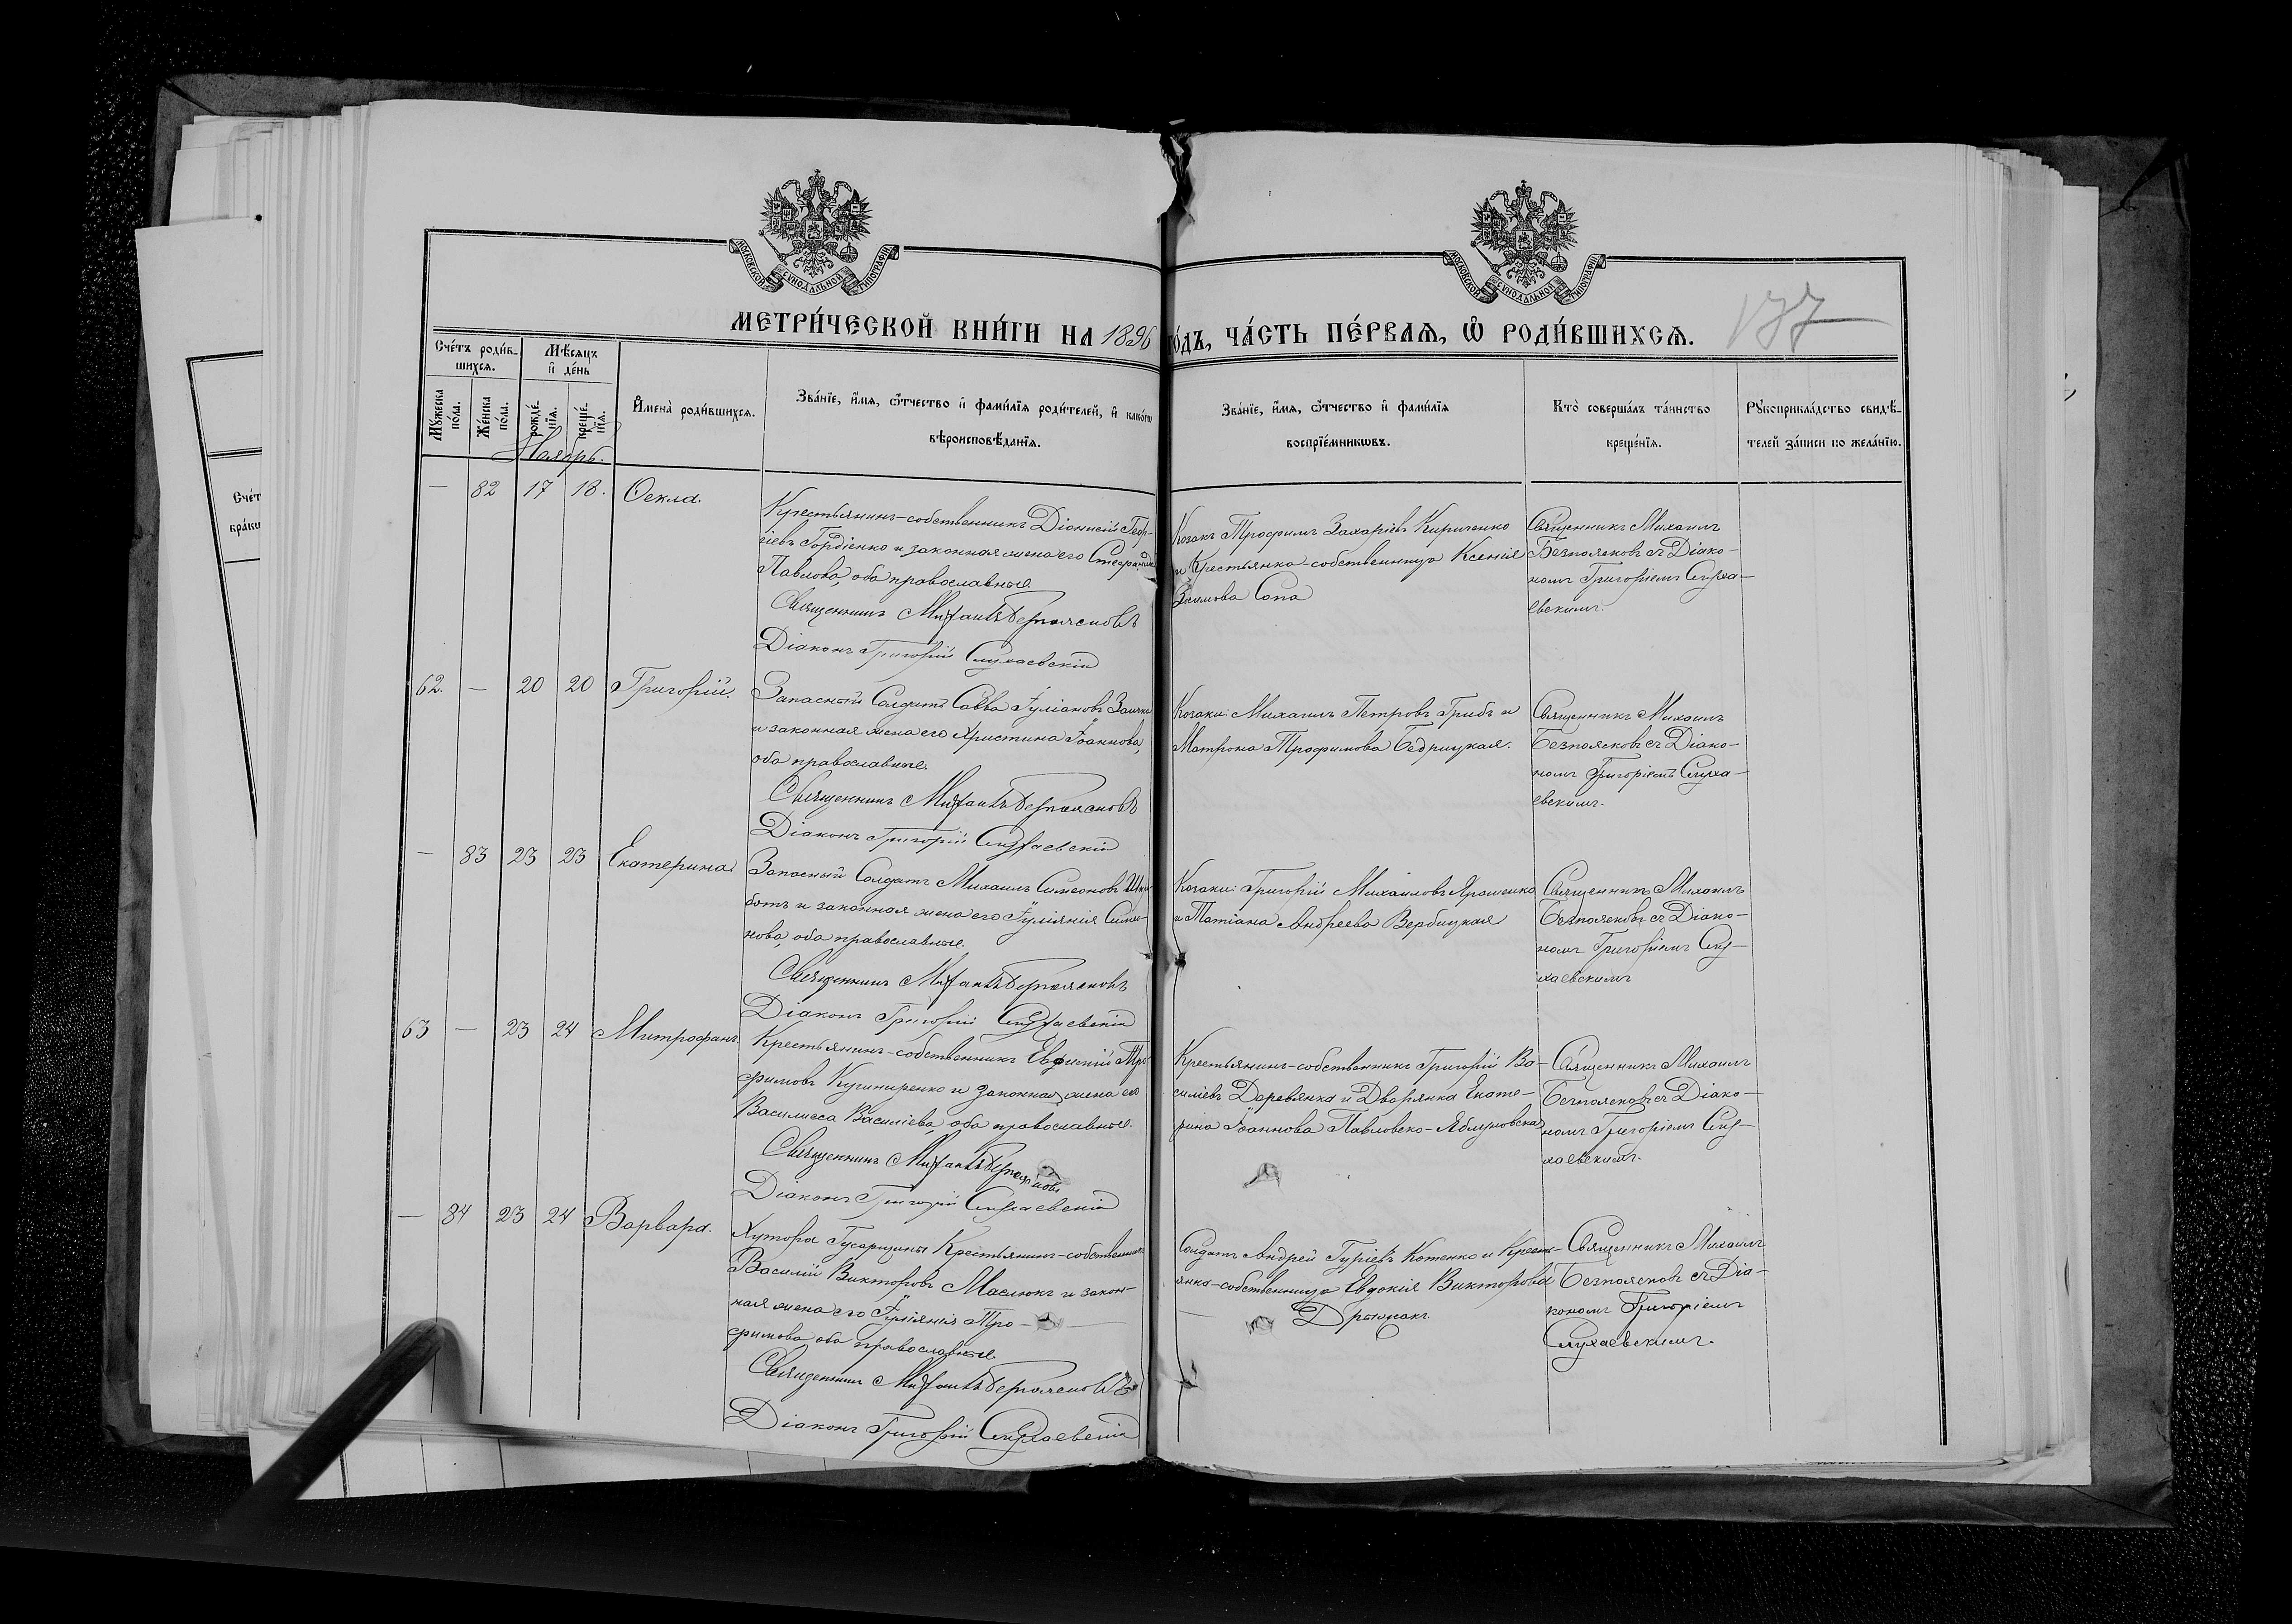 МОСКОВСКОЙ СѴНОДАЛЬНОЙ ТИПОГРАФІИ.
МОСКОВСКОЙ СѴНОДАЛЬНОЙ ТИПОГРАФІИ.
МЕТРИ́ЧЕСКОЙ КНИ́ГИ НА 1896 ГО́ДЪ, ЧА́СТЬ ПЕ́РВАѦ, Ѽ РОДИ́ВШИХСѦ.
177
Сче́тъ роди́в-
шихсѧ.
Мѣ́сѧцъ
и҆ де́нь
Мꙋ́жеска
по́ла.
Же́нска
по́ла.
рожде́-
нїѧ.
креще́-
нїѧ.
И҆мена̀ роди́вшихсѧ.
Зва́нїе, и҆́мѧ, ѻ҆́тчество и҆ фами́лїѧ роди́телей, и҆ како́гѡ
вѣроисповѣ́данїѧ.
Зва́нїе, и҆́мѧ, ѻ҆́тчество и҆ фами́лїѧ
воспрїе́мникѡвъ.
Кто̀ соверша́лъ та́инство
креще́нїѧ.
Рꙋкоприкла́дство свидѣ́-
телей за́писи по жела́нїю.
Ноябрь.
— 82 17 18. Ѳекла.
Крестьянинъ-собственникъ Діонисій Геор-
гіевъ Гордіенко и законная жена его Стефанида
Павлова, оба православные.
Священникъ Михаилъ Безпоясковъ
Діаконъ Григорій Слухаевскій
Козакъ Трофимъ Захаріевъ Кириченко
и Крестьянка-собственница Ксенія
Зосимова Сопа
Священникъ Михаилъ
Безпоясковъ съ Діако-
номъ Григоріемъ Слуха-
евскимъ.
62. — 20 20 Григорій.
Запасный Солдатъ Савва Іуліановъ
и законная жена его Христина Іоаннова,
оба православные.
Священникъ Михаилъ Безпоясковъ
Діаконъ Григорій Слухаевскій
Козаки: Михаилъ Петровъ Грибъ и
Матрона Трофимова Бедрицкая.
Священникъ Михаилъ
Безпоясковъ съ Діако-
номъ Григоріемъ Слуха-
евскимъ.
— 83 23 23 Екатерина
Запасный Солдатъ Михаилъ Симеоновъ
и законная жена его Іуліанія Симео-
нова, оба православные.
Священникъ Михаилъ Безпоясковъ
Діаконъ Григорій Слухаевскій
Козаки: Григорій Михаиловъ Ярошенко
и Татіана Андреева Вербицкая
Священникъ Михаилъ
Безпоясковъ съ Діако-
номъ Григоріемъ Слу-
хаевскимъ
63 — 23 24 Митрофанъ.
Крестьянинъ-собственникъ Евфимій Тро-
фимовъ и законная жена его
Василисса Василіева, оба православные.
Священникъ Михаилъ Безпоясковъ
Діаконъ Григорій Слухаевскій
Крестьянинъ-собственникъ Григорій Ва-
силіевъ Деревянка и Дворянка Екате-
рина Іоаннова Павловско-Яблуновская
Священникъ Михаилъ
Безпоясковъ съ Діако-
номъ Григоріемъ Слу-
хаевскимъ.
— 84 23 24 Варвара.
Хутора Гусарщины Крестьянинъ-собственникъ
Василій Викторовъ Маслюкъ и закон-
ная жена его Іуліанія Тро-
фимова оба православные.
Священникъ Михаилъ Безпоясковъ
Діаконъ Григорій Слухаевскій
Солдатъ Андрей Гуріевъ Котенко и Кресть-
янка-собственница Евдокія Викторова
Дрыжакъ.
Священникъ Михаилъ
Безпоясковъ съ Діа-
кономъ Григоріемъ
Слухаевскимъ.
Сче́т
бра́ки